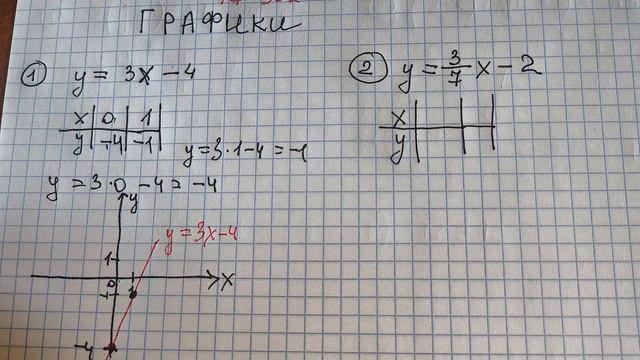 ГРАФИКИ
① y = 3x - 4
x | 0 | 1
y | -4 | -1
y = 3 · 1 - 4 = -1
y = 3 · 0 - 4 = -4
y
y = 3x - 4
1
0 1 x
-1
-4
② y = 3/7 x - 2
x
y